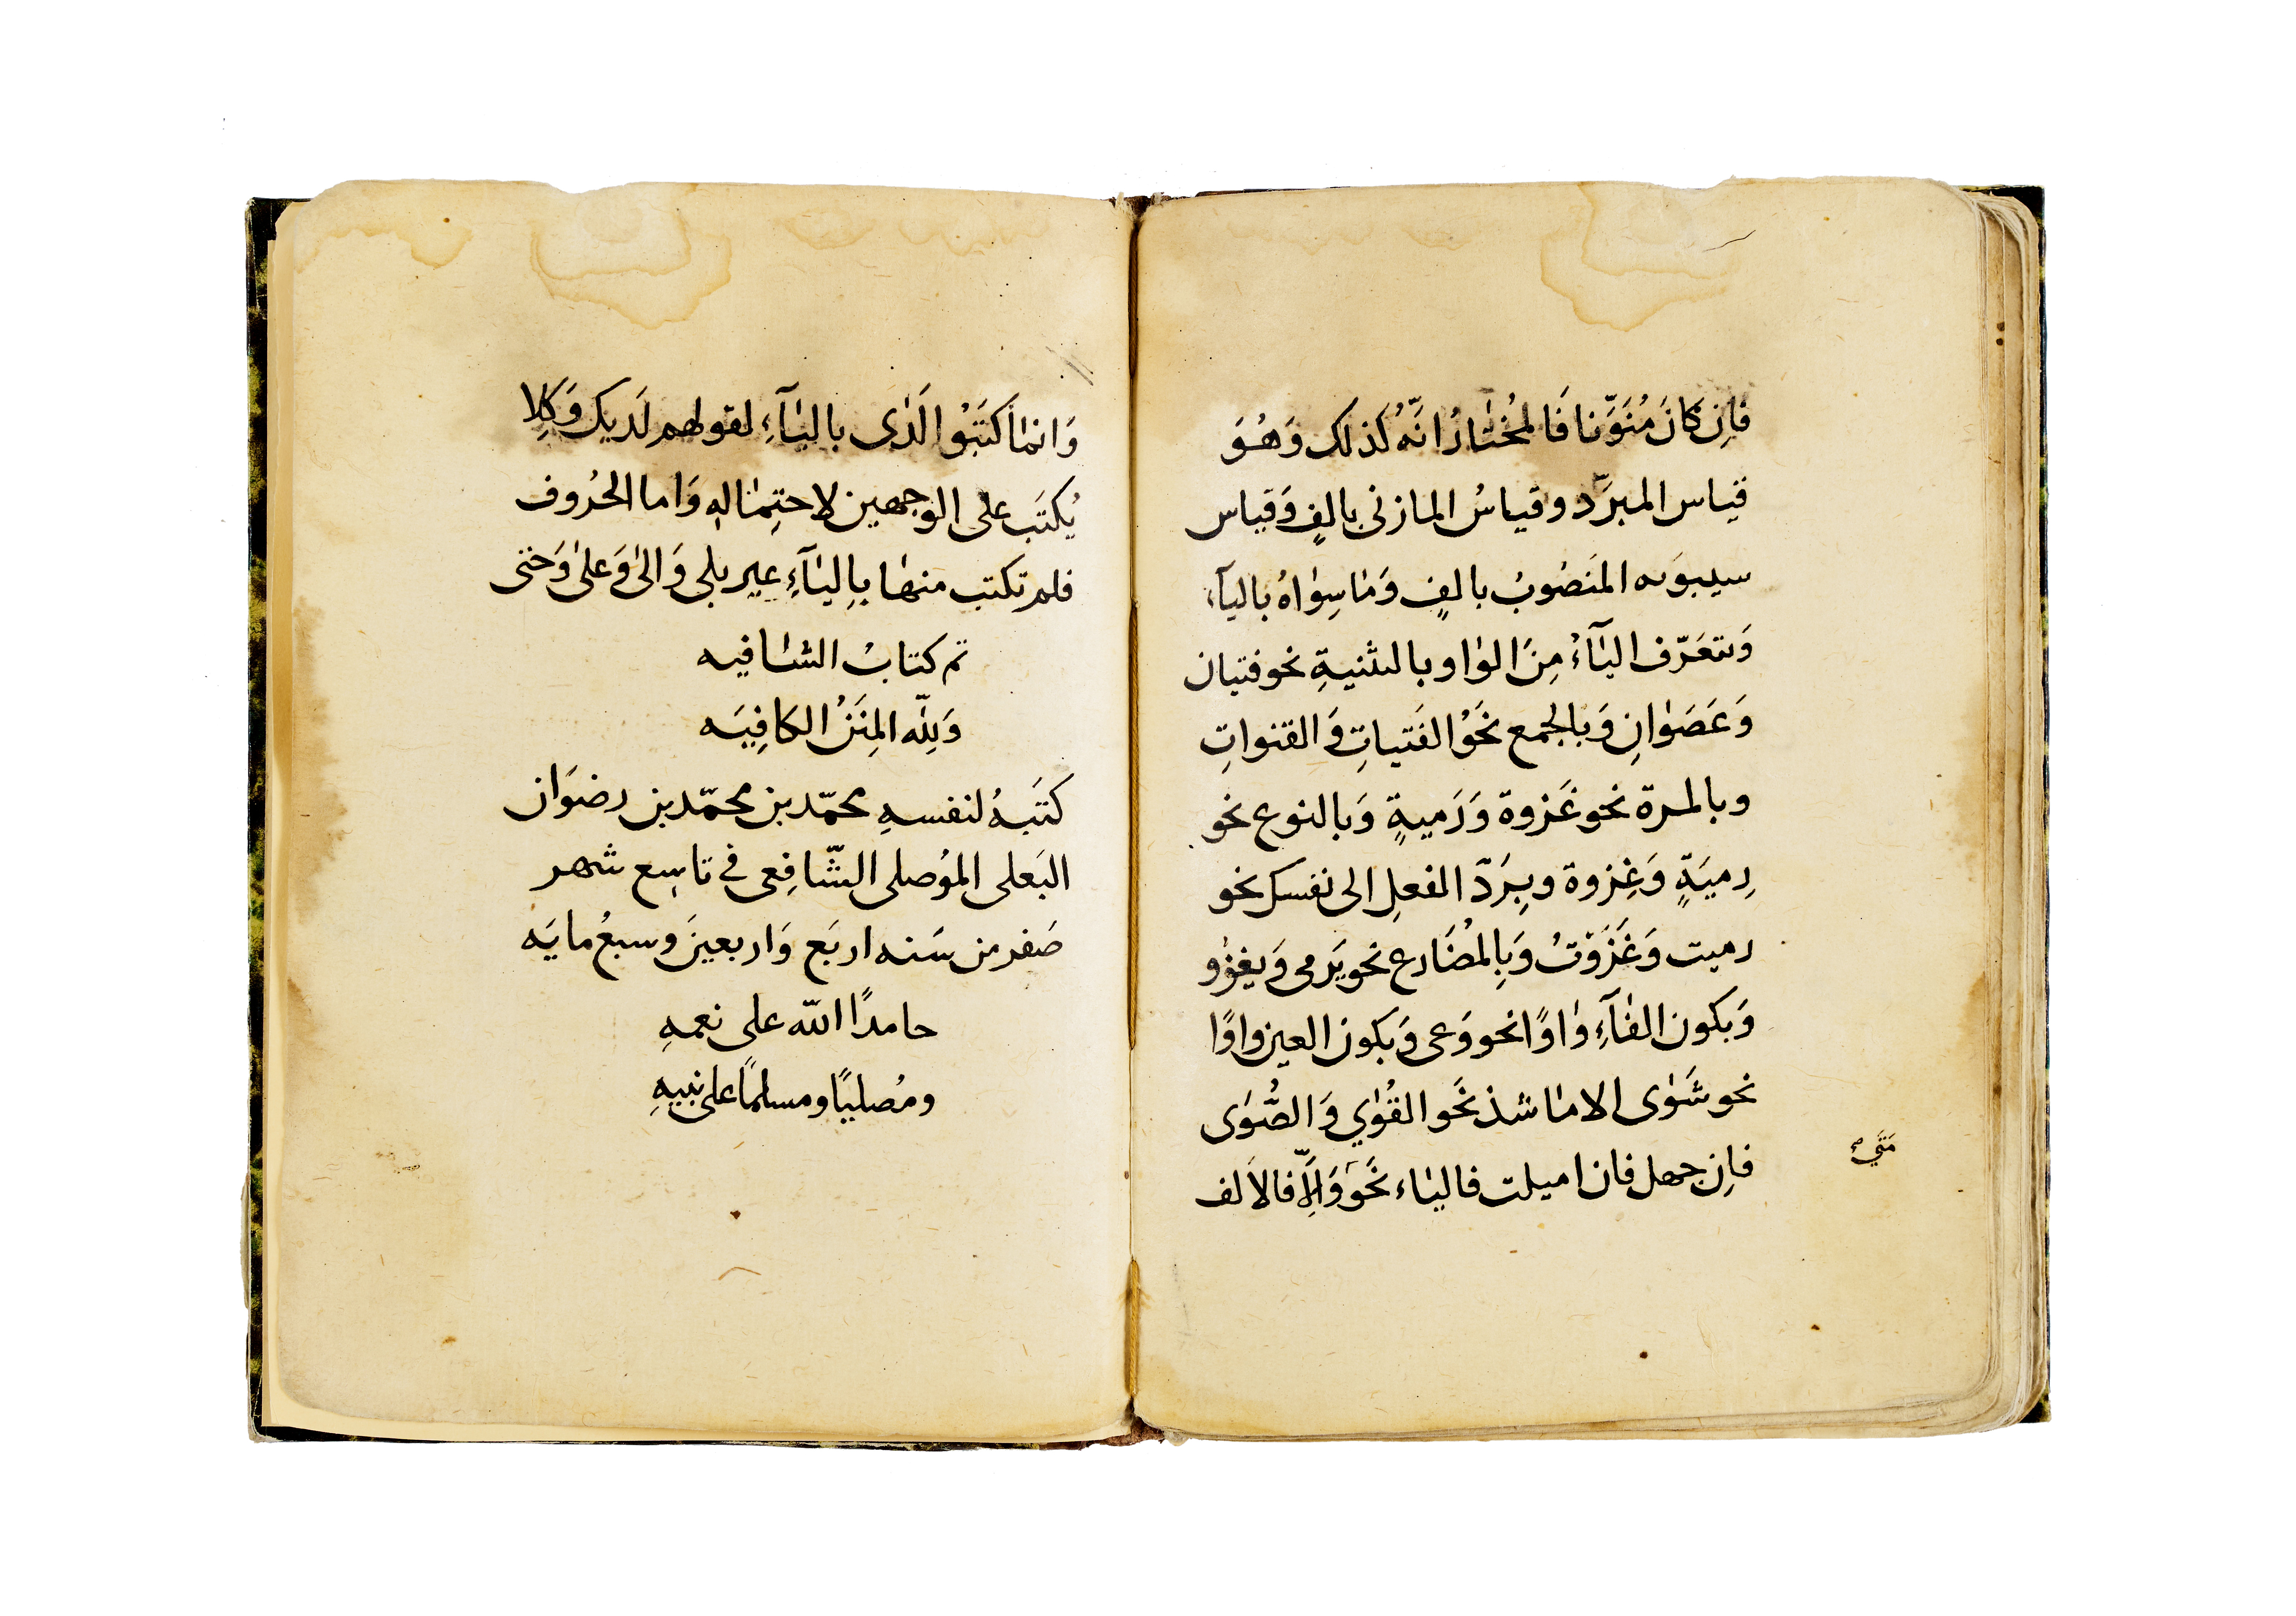 فاِن كانَ مُنَوَّنا فَالمُختٰارُ انَّهُ كَذلك وَهُوَ
قياس المبرَّد وقياسُ المازنى بالفٍ وَقياس
سيبوَىه المنَصُوبُ بالفٍ وَمٰا سِوٰاهُ باليآء
وَىتعَرّف اليٰآءُ مِنَ الوٰاو بالتثنيةِ نحو فتيان
وَعَصَوٰانِ وَبالجمع نَحَوُ الفَتياتِ وَالقنواتِ
وبالمرة نحو غَزوة وَرَميةٍ وَبالنوع نحو
رِميَةٍ وَغِزوة وبِرَدّ الفعلِ الى نفسك نحو
رميت وَغَزَوْتُ وَبِالمُضَارع نحو يَرمى وَيغزو
وَبكون الفٰآءِ وٰاوًا نحو وَعى وَبكون العين واوًا
نحو شَوٰى الا مٰا شذ نَحَو القُوٰي وَالصُّوٰى
فاِن جهل فان اميلت فاليٰاء نَحَو وَاِلاّ فالاَلف
مَتَي صح
وَانمٰا كتَبَوُا لَدٰى باليٰآءِ لقولهم لَديك وَكِلا
يُكتَب على الوجهين لاحتِمٰالهِ وَاما الحُروف
فلم تكتب منهٰا بِاليٰآءِ غير بلى وَالىٰ وَعلىٰ وَحتى
تم كتابُ الشٰافيه
وَلِلّه المِنَنُ الكافِيَه
كتَبهُ لنفسهِ محمّد بن محمّد بن رضوَان
البَعلى المَوُصلى الشّافِعى فى تاسِع شهر
صَفر من سَنه اربَع وَاربعينَ وسبعُمايَه
حامدًا الله على نعمهِ
ومُصليًا ومسلمًا على نبيهِ